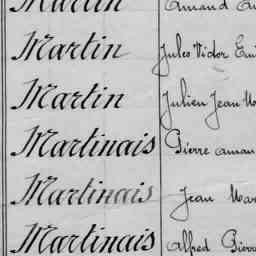 Martin Amand
Martin Jules Victor
Martin Julien Jean
Martinais Pierre aman
Martinais Jean Mar
Martinais Alfred Pierre